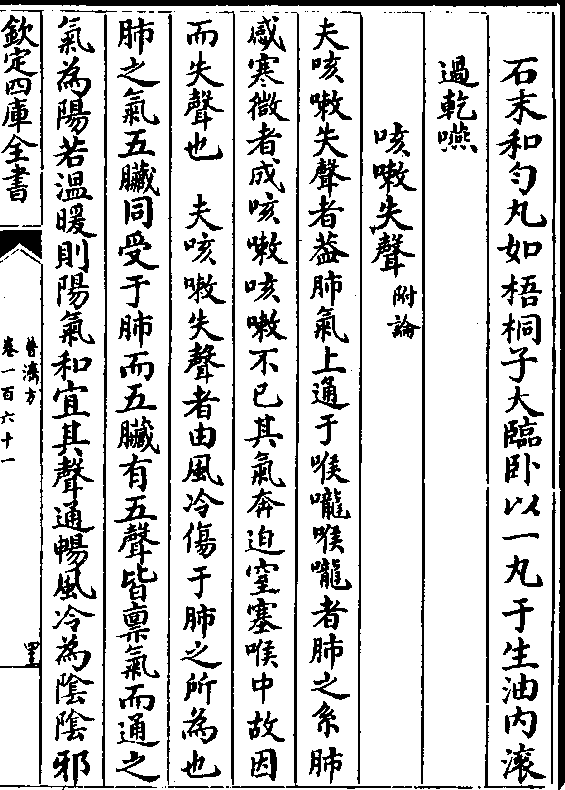 石末和勻丸如梧桐子大臨卧以一丸于生油内滚
過乾嚥
咳嗽失聲附論
夫咳嗽失聲者葢肺氣上通于喉嚨喉嚨者肺之系肺
感寒微者成咳嗽咳嗽不已其氣奔迫窒塞喉中故因
而失聲也　夫咳嗽失聲者由風冷傷于肺之所為也
肺之氣五臟同受于肺而五臟有五聲皆禀氣而通之
氣為陽若温暖則陽氣和宜其聲通暢風冷為陰陰邪
欽定四庫全書
普濟方
卷一百六十一